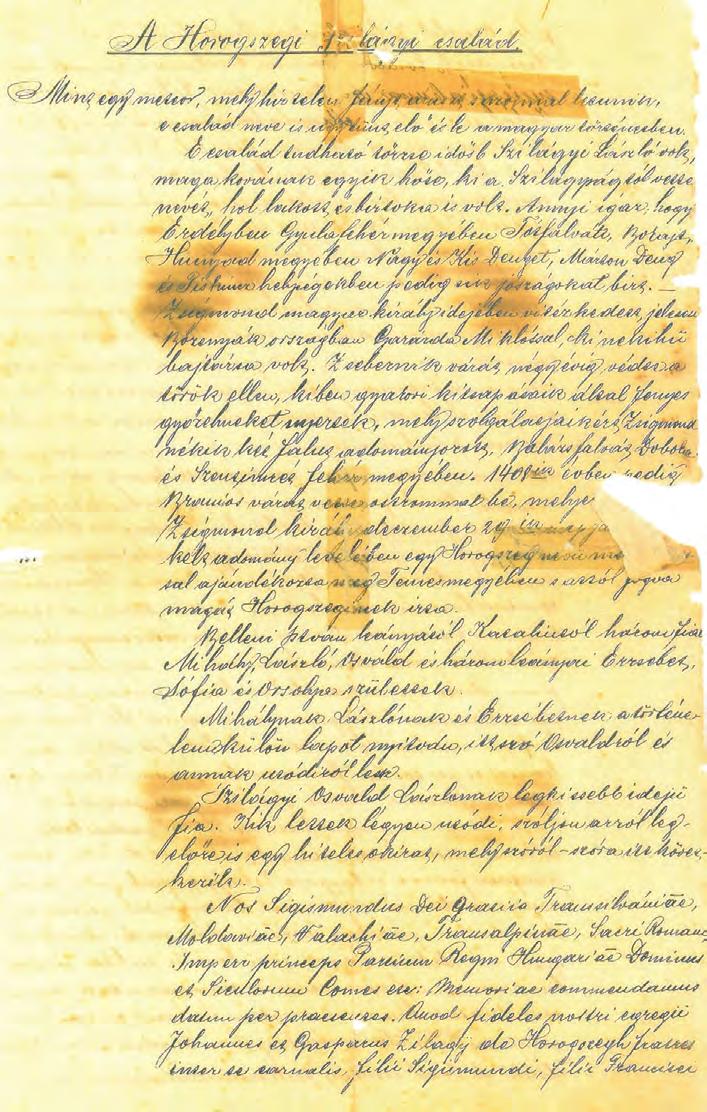 A Horogszegi Szilágyi család.
Mint egy meteor, mely hirtelen fényt áraszt, s nyommal letünik,
e család neve is úgy tünt elő és le a magyar történetben.
E család tudható törzse idősb Szilágyi László volt,
maga korának egyik hőse, ki a Szilágyságtól vette
nevét, hol lakott, és birtoka is volt. Annyi igaz, hogy
Erdélyben Gyulafehérmegyében Tósfalvát, Bozajt,
Hunyad megyében Nagy és Kis Denget, Marton Deng
és Piskincz helységekben pedig sok jószágokat birt. —
Zsigmond magyar király idejében vitézkedett, jelesen
Bozenyák országban Garazda Miklóssal, ki neki hű
bajtársa volt. Zsebernik várát négy évig védte a
török ellen, kiben gyakori kitsapásaik által fényes
győzelmeket nyertek, mely szolgálatjaikért Zsigmond
nékik két falut adományozott, Bahársfalvát Doboka
és Szentimrét Fehér megyében. 1408ik évben pedig
Branios várát vette ostrommal be, melyé
Zsigmond király deczember 29ik napján
kelt adomány levelében egy Horogszeg nevü
sal ajándékozta meg Temesmegyében s attól fogva
magát Horogszeginek írta.
Belleni István leányától, Katalintól három fiai
Mihály, László, Osváld és három leányai Erzsébet,
Sófia és Orsolya születtek.
Mihálynak, Lászlónak és Erzsébetnek a történe-
lem külön lapot nyitván, itt szó Osvaldról és
annak utódiról lesz.
Szilágyi Osvald Lászlónak legkissebb idejü
fia. Kik lettek légyen utódi, szóljon arról leg-
előre is egy hiteles okirat, mely szóról–szóra itt követ-
kezik.
Nos Sigismundus Dei gratia Transilvániae,
Moldaviae, Valachiae, Transalpinae, Sacri Romani
Imperii princeps Partium Regni Hungariae Dominus
et Siculorum Comes etc: Memoriae commendamus
datum per praesentes. Quod fideles nostri egregii
Johannes et Gasparus Zilagÿ de Horogszegh fratres
inter se carnalis, filii Sigismundi, filii Francisci